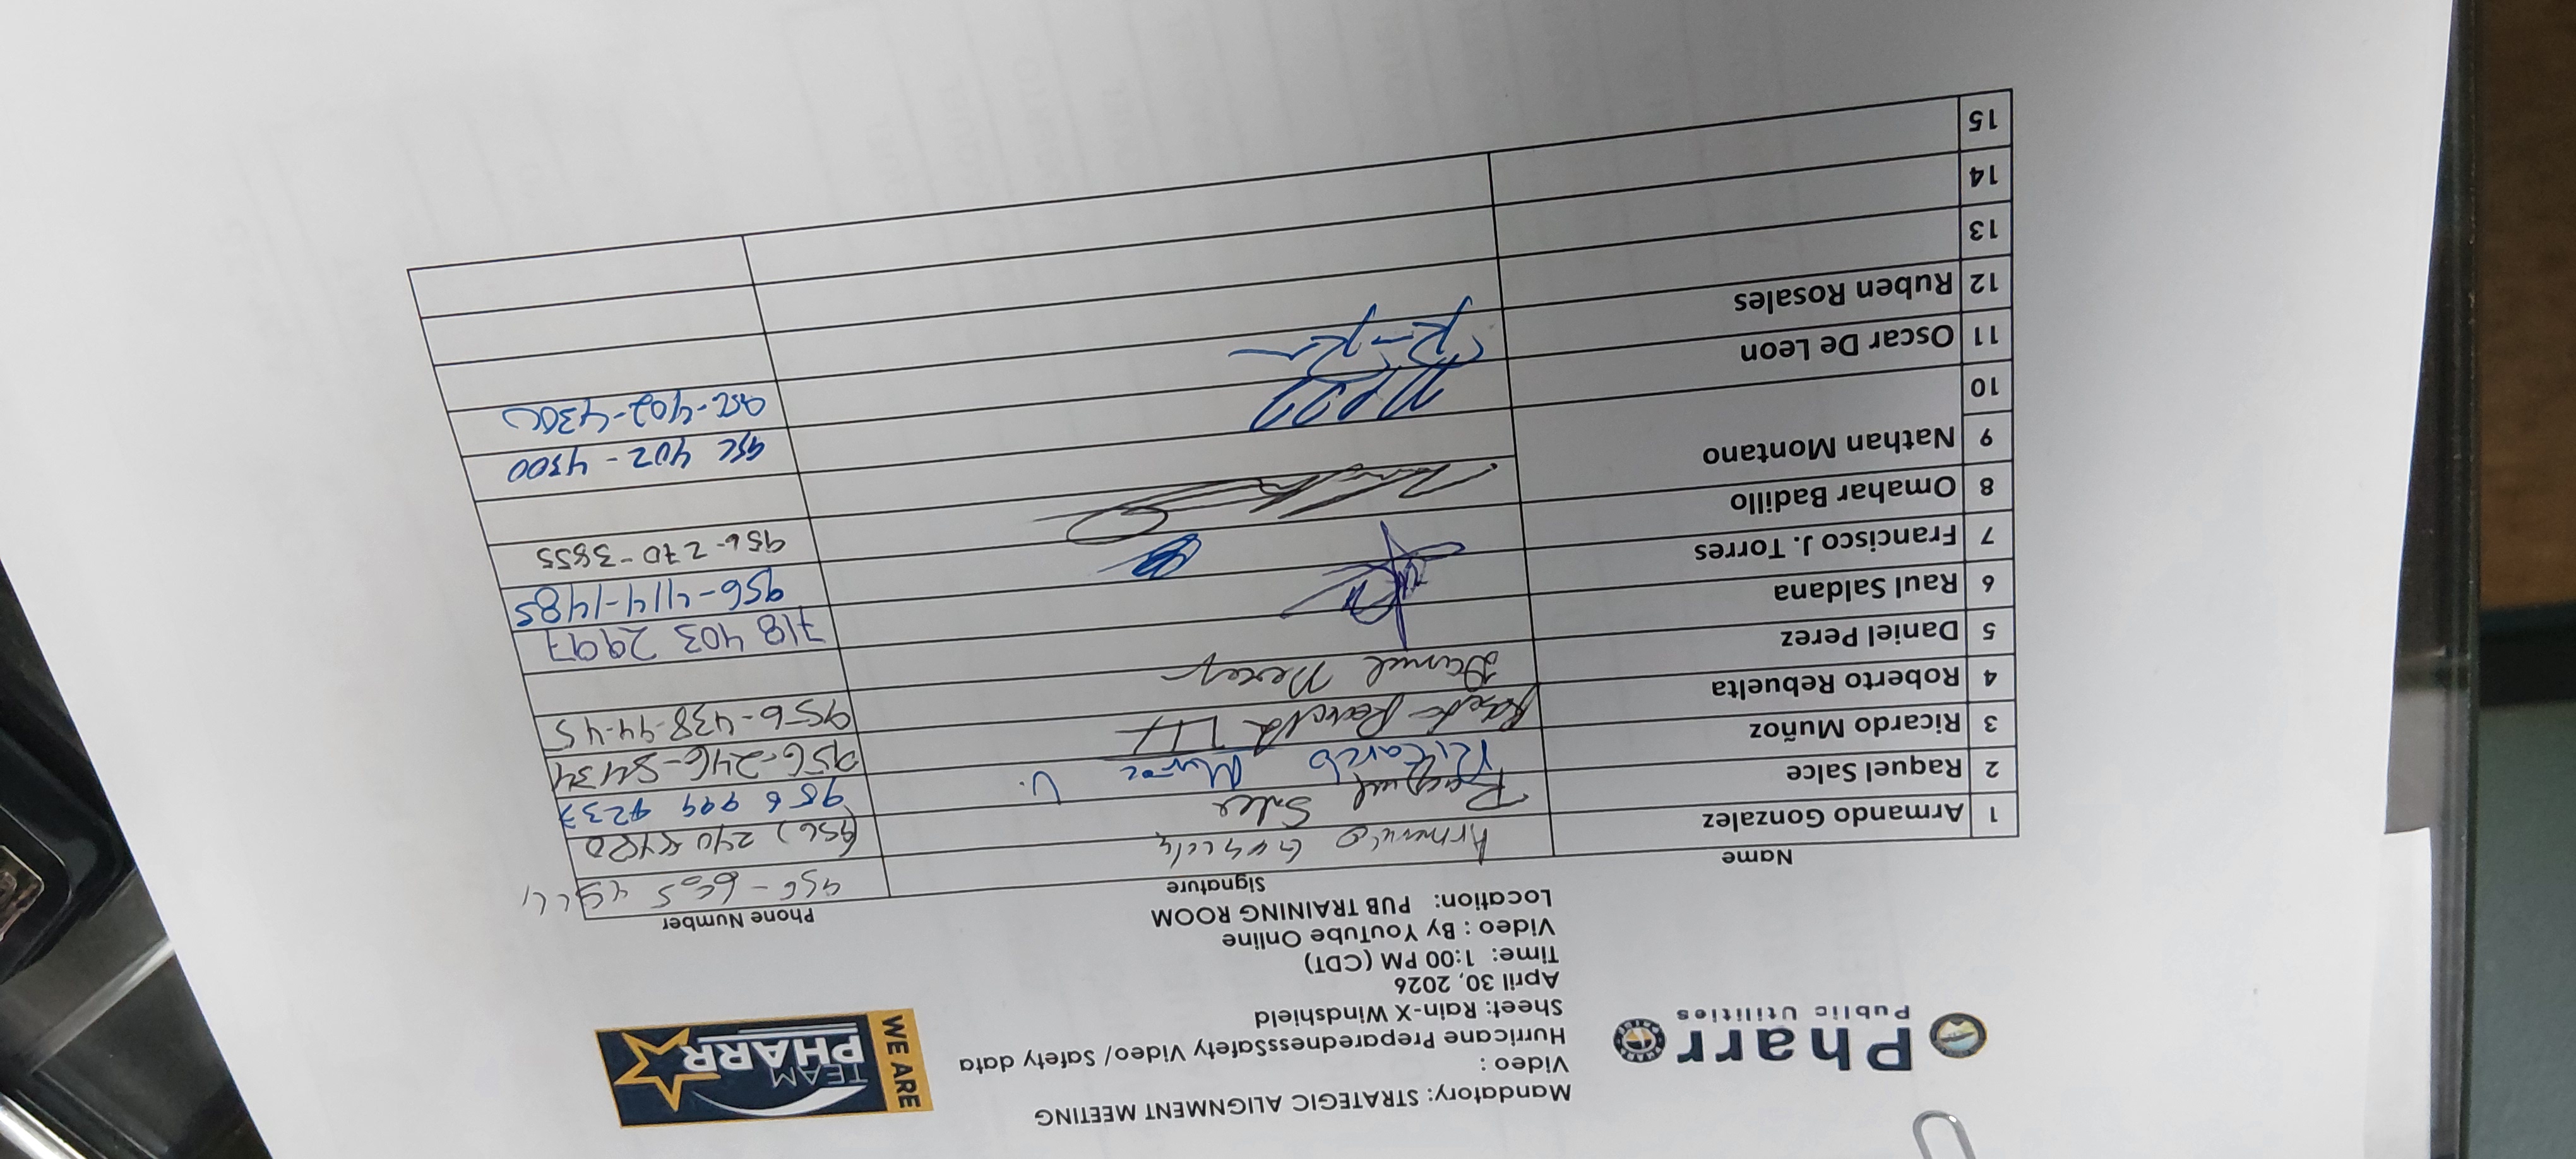 Pharr
Public Utilities
Mandatory: STRATEGIC ALIGNMENT MEETING
Video :
Hurricane PreparednessSafety Video/ Safety data
Sheet: Rain-X Windshield
April 30, 2026
Time: 1:00 PM (CDT)
Video : By YouTube Online
Location: PUB TRAINING ROOM
WE ARE
TEAM
PHARR
Name Signature Phone Number
1 Armando Gonzalez
2 Raquel Salce Raquel Salce
3 Ricardo Muñoz Ricardo Munoz V. 956
4 Roberto Rebuelta 956-246-8434
5 Daniel Perez Daniel Perez 956-438-94-45
6 Raul Saldana
7 Francisco J. Torres 718 403 2997
8 Omahar Badillo 956-414-1485
9 Nathan Montano 956-270-3855
10
11 Oscar De Leon 956 402-4300
12 Ruben Rosales 956-402-4300
13
14
15